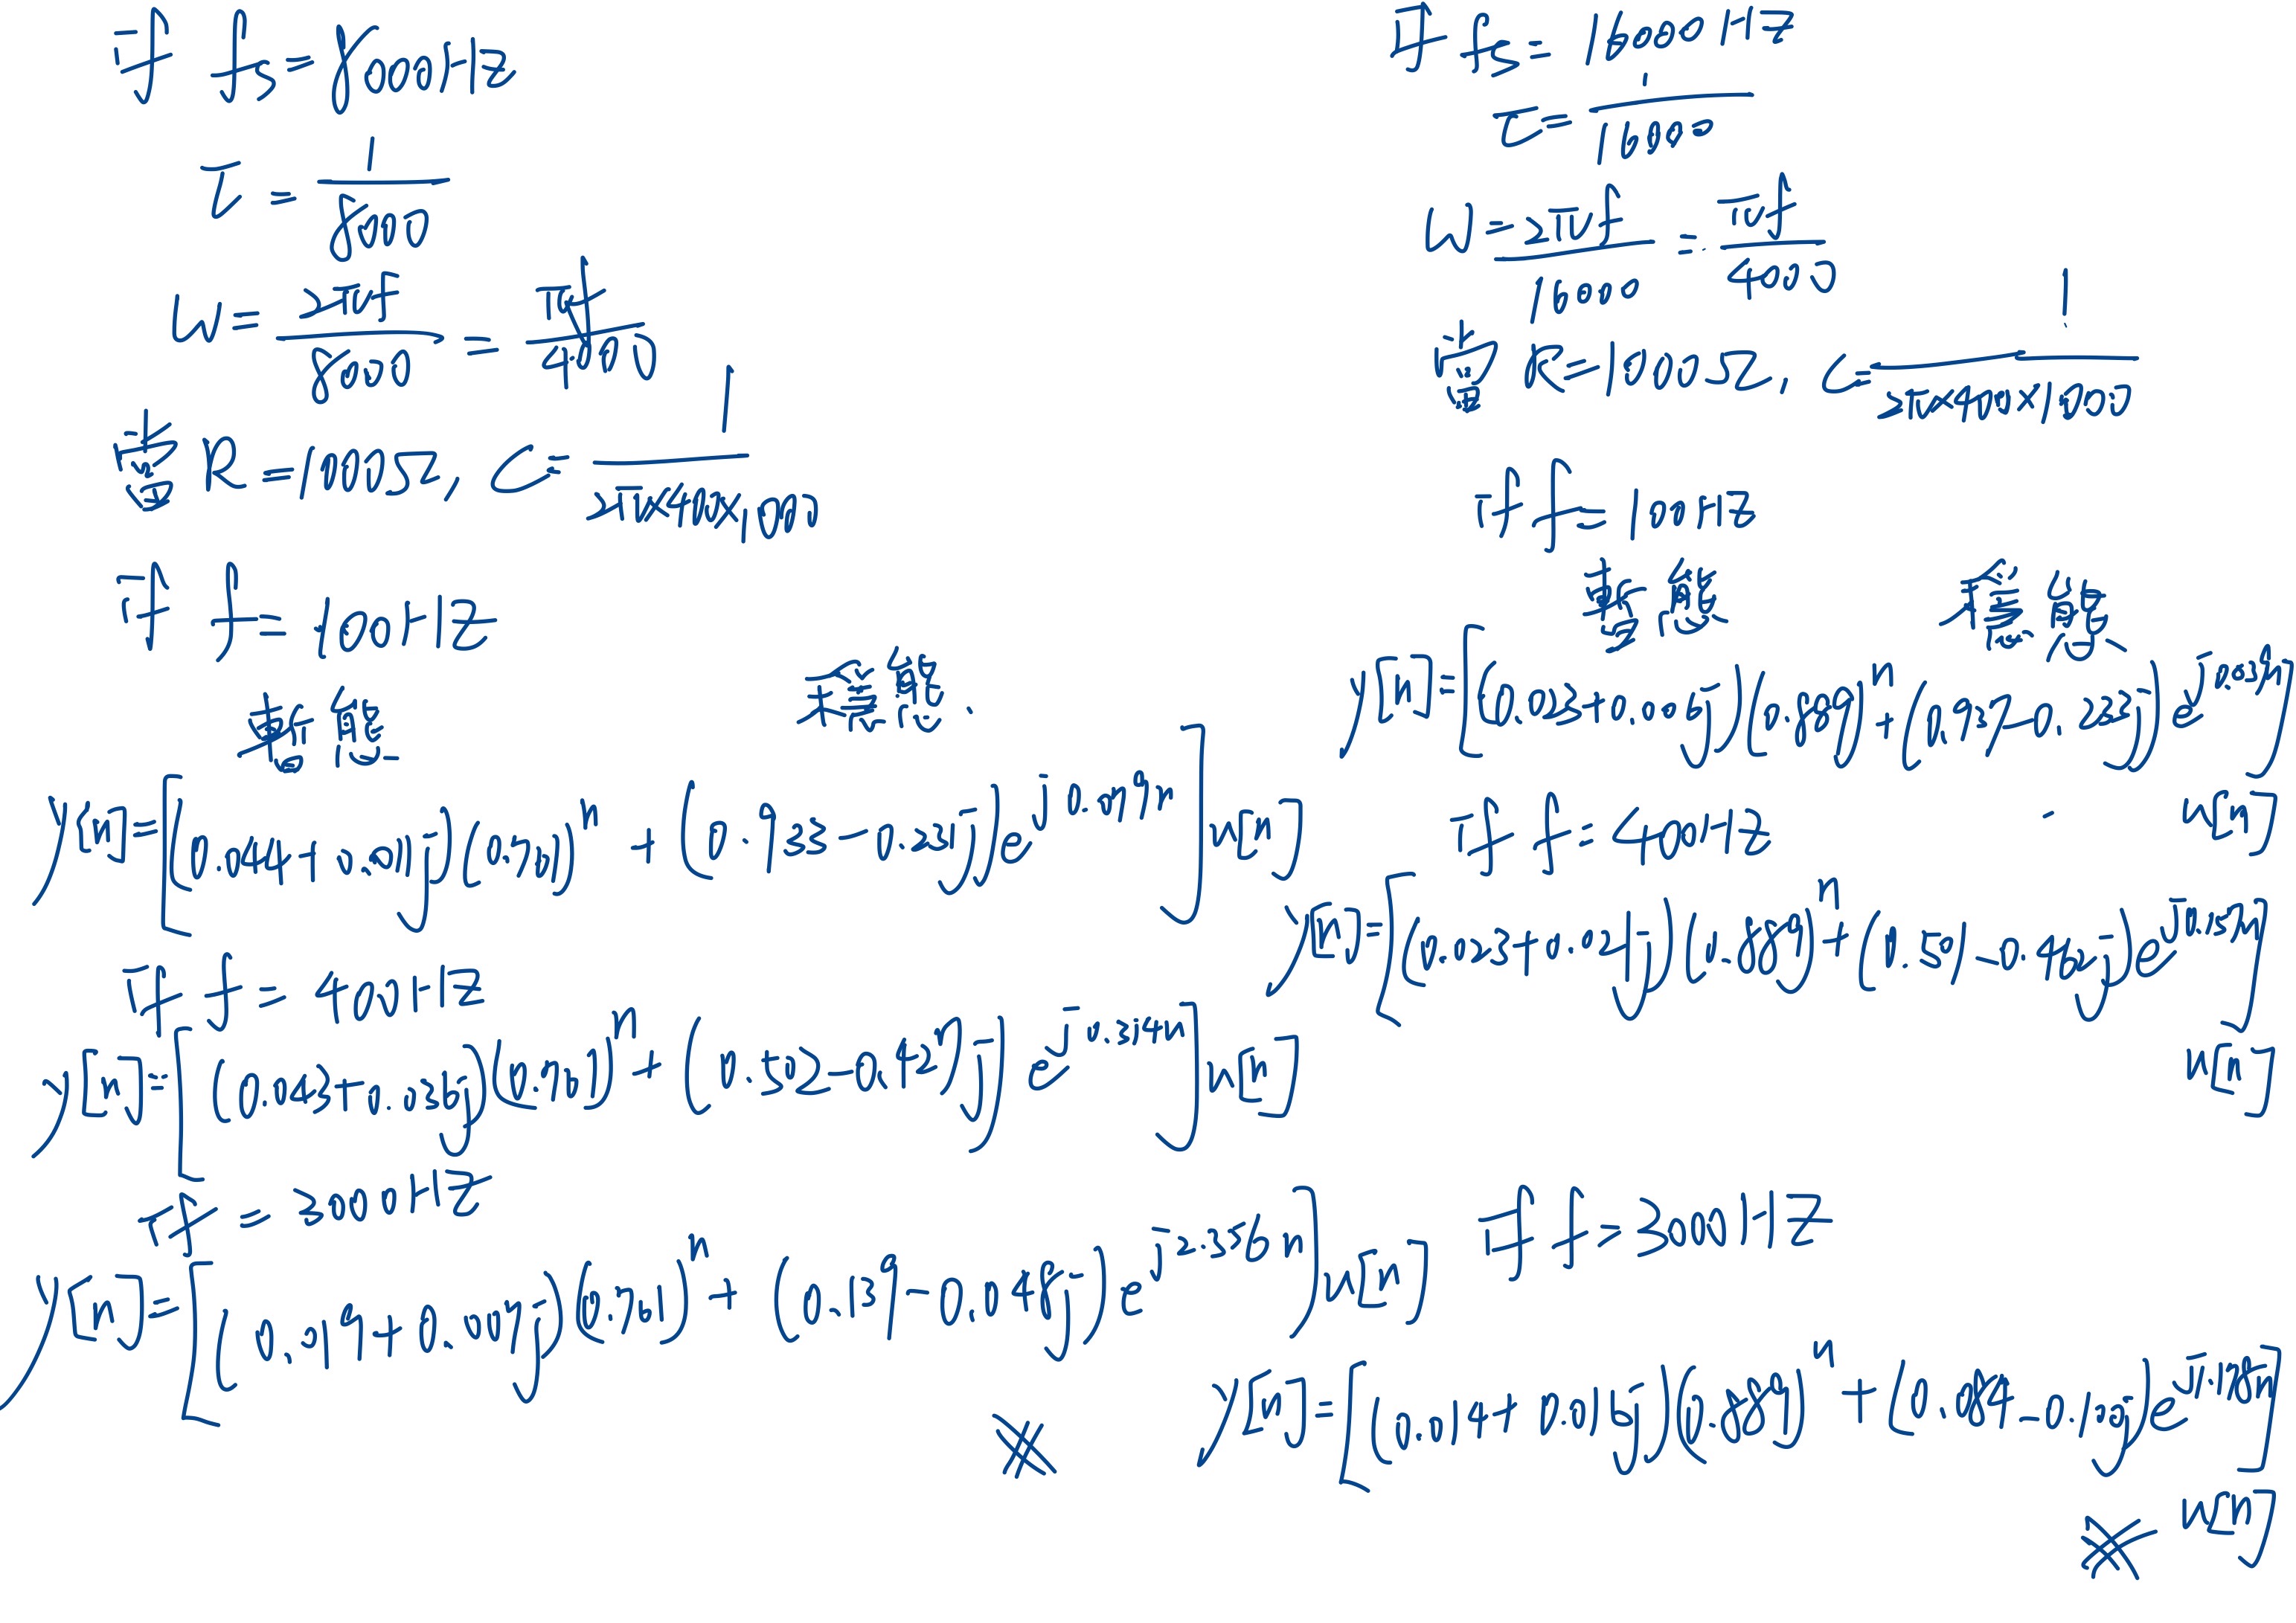 if fs=8000Hz
τ = 1/8000
W = 2πf/8000 = πf/4000
當 R=1000Ω, C= 1/2π×400×1000
if f = 100Hz
暫態 穩態
y[n]=[(0.044+0.011j)(0.761)^n + (0.933-0.231j)e^j0.079n]u[n]
if f = 400Hz
y[n]=[(0.043+0.036j)(0.761)^n + (0.502-0.429j)e^j0.314n]u[n]
if = 3000Hz
y[n]=[(0.019+0.007j)(0.761)^n + (0.139-0.048j)e^j2.356n]u[n]
if fs= 16000Hz
τ= 1/16000
W=2πf/16000 = πf/4000
當 R=1000Ω, C= 1/2π×400×1000
if f=100Hz
暫態 穩態
y[n]=[(0.023+0.006j)(0.889)^n+(0.937-0.233j)e^j0.039n]
u[n]
if f=400Hz
y[n]=[(0.023+0.021j)(0.889)^n+(0.501-0.462j)e^j0.157n]
u[n]
if f=3000Hz
y[n]=[(0.014+0.016j)(0.889)^n+(0.084-0.122j)e^j1.178n]
u[n]